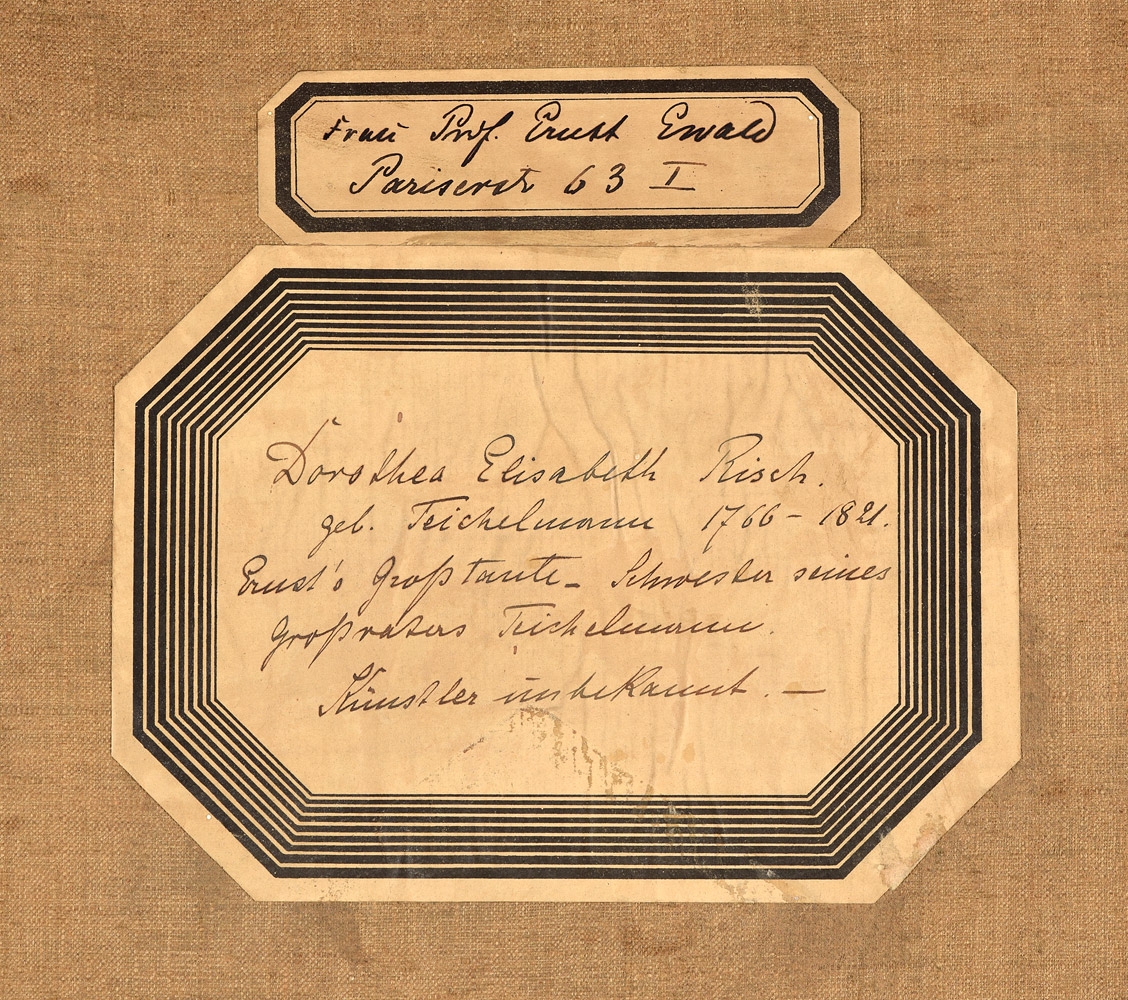 Frau Prof. Ernst Ewald
Pariserstr 63 I
Dorothea Elisabeth Risch.
geb. Teichelmann 1766 – 1821.
Ernst's Großtante – Schwester seines
Großvaters Teichelmann.
Künstler unbekannt. —